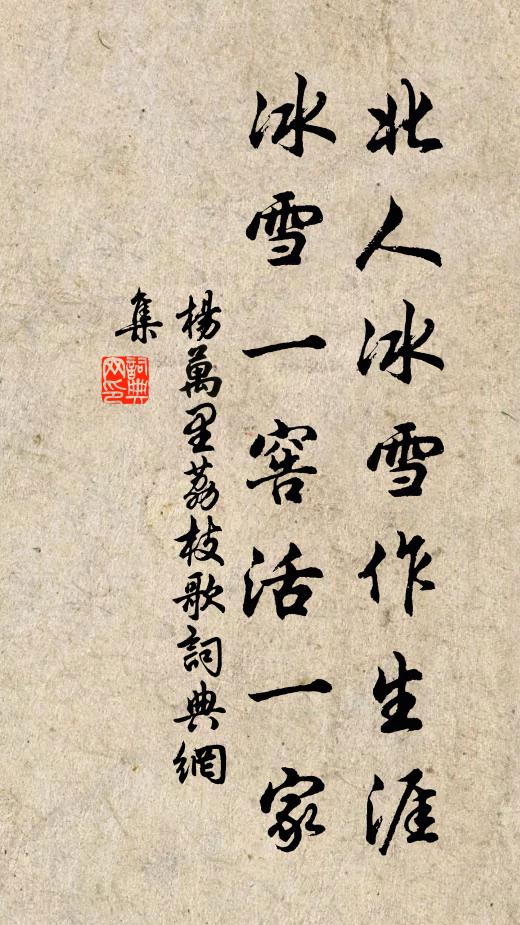 北人冰雪作生涯
冰雪一窖活一家
楊萬里荔枝歌詞典網
集
詞典
网印